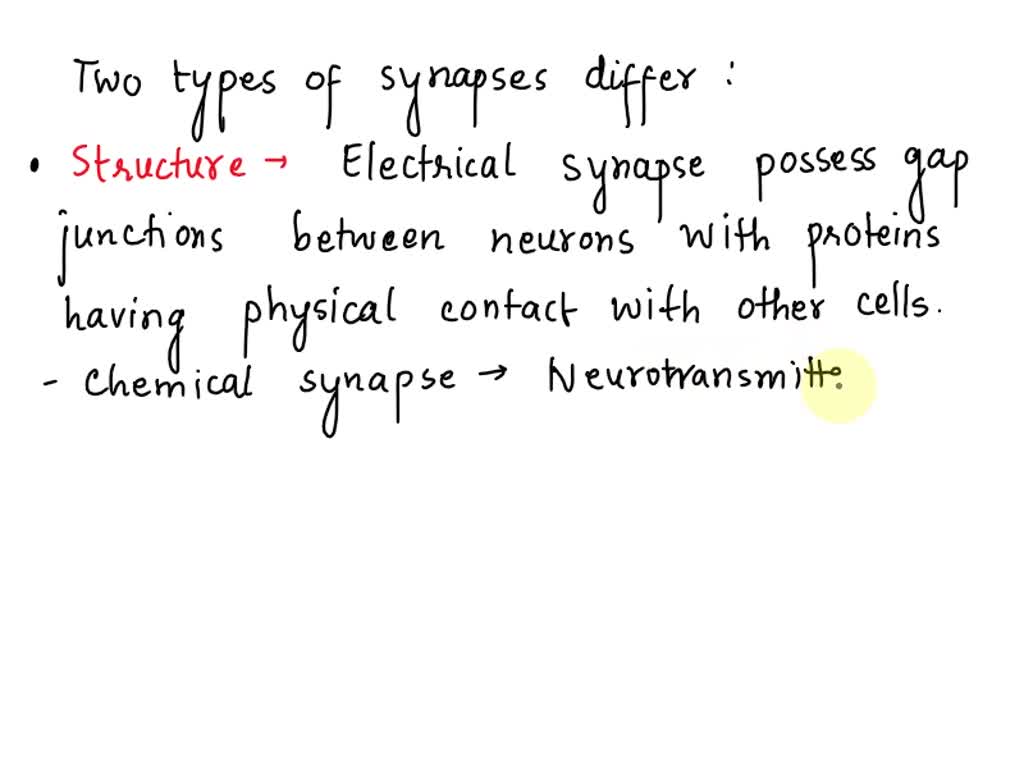 Two types of synapses differ :
• Structure → Electrical synapse possess gap
junctions between neurons with proteins
having physical contact with other cells.
- Chemical synapse → Neurotransmitt